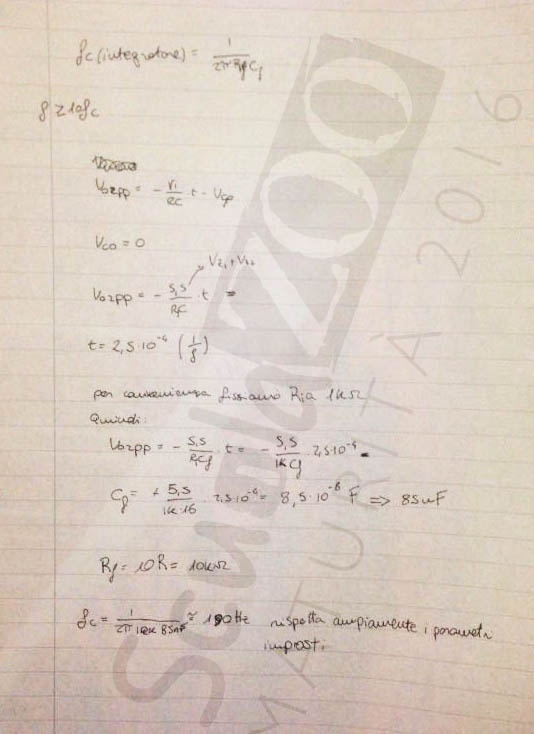 fc (integratore) = 1 / 2π Rf Cf
f ≥ 10fc
Vo2pp = - Vi / RC · t - Vco
Vco = 0
Vz1 + Vz2
Vo2pp = - 5,5 / RC · t =
t = 2,5·10⁻⁴ (1/f)
per convenienza fissiamo Ri a 1KΩ
Quindi:
Vo2pp = - 5,5 / RiCf · t = - 5,5 / 1K Cf · 2,5·10⁻⁴
Cf = + 5,5 / 1K·16 · 2,5·10⁻⁴ = 8,5·10⁻⁸ F ⇒ 85nF
Rf = 10R = 10KΩ
fc = 1 / 2π 10K 85nF ≈ 190Hz rispetta ampiamente i parametri
imposti
ScuolaZOO
MATURITÀ 2016